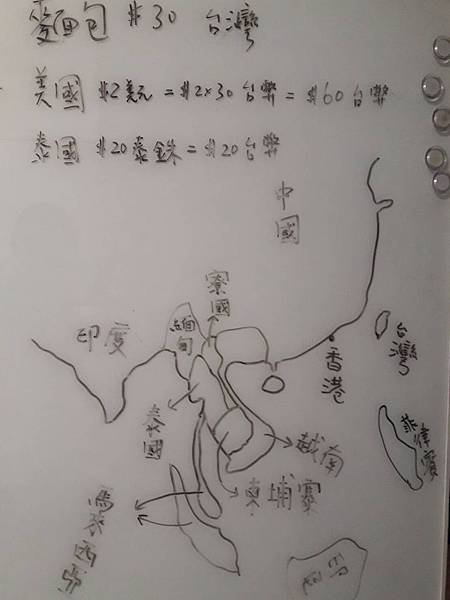 麥面包 $30 台灣
美國 $2美元=$2×30台幣=$60台幣
泰國 $20泰銖=$20台幣
中國
寮國
緬甸
印度
台灣
香港
泰國
越南
菲律賓
柬埔寨
馬來西亞